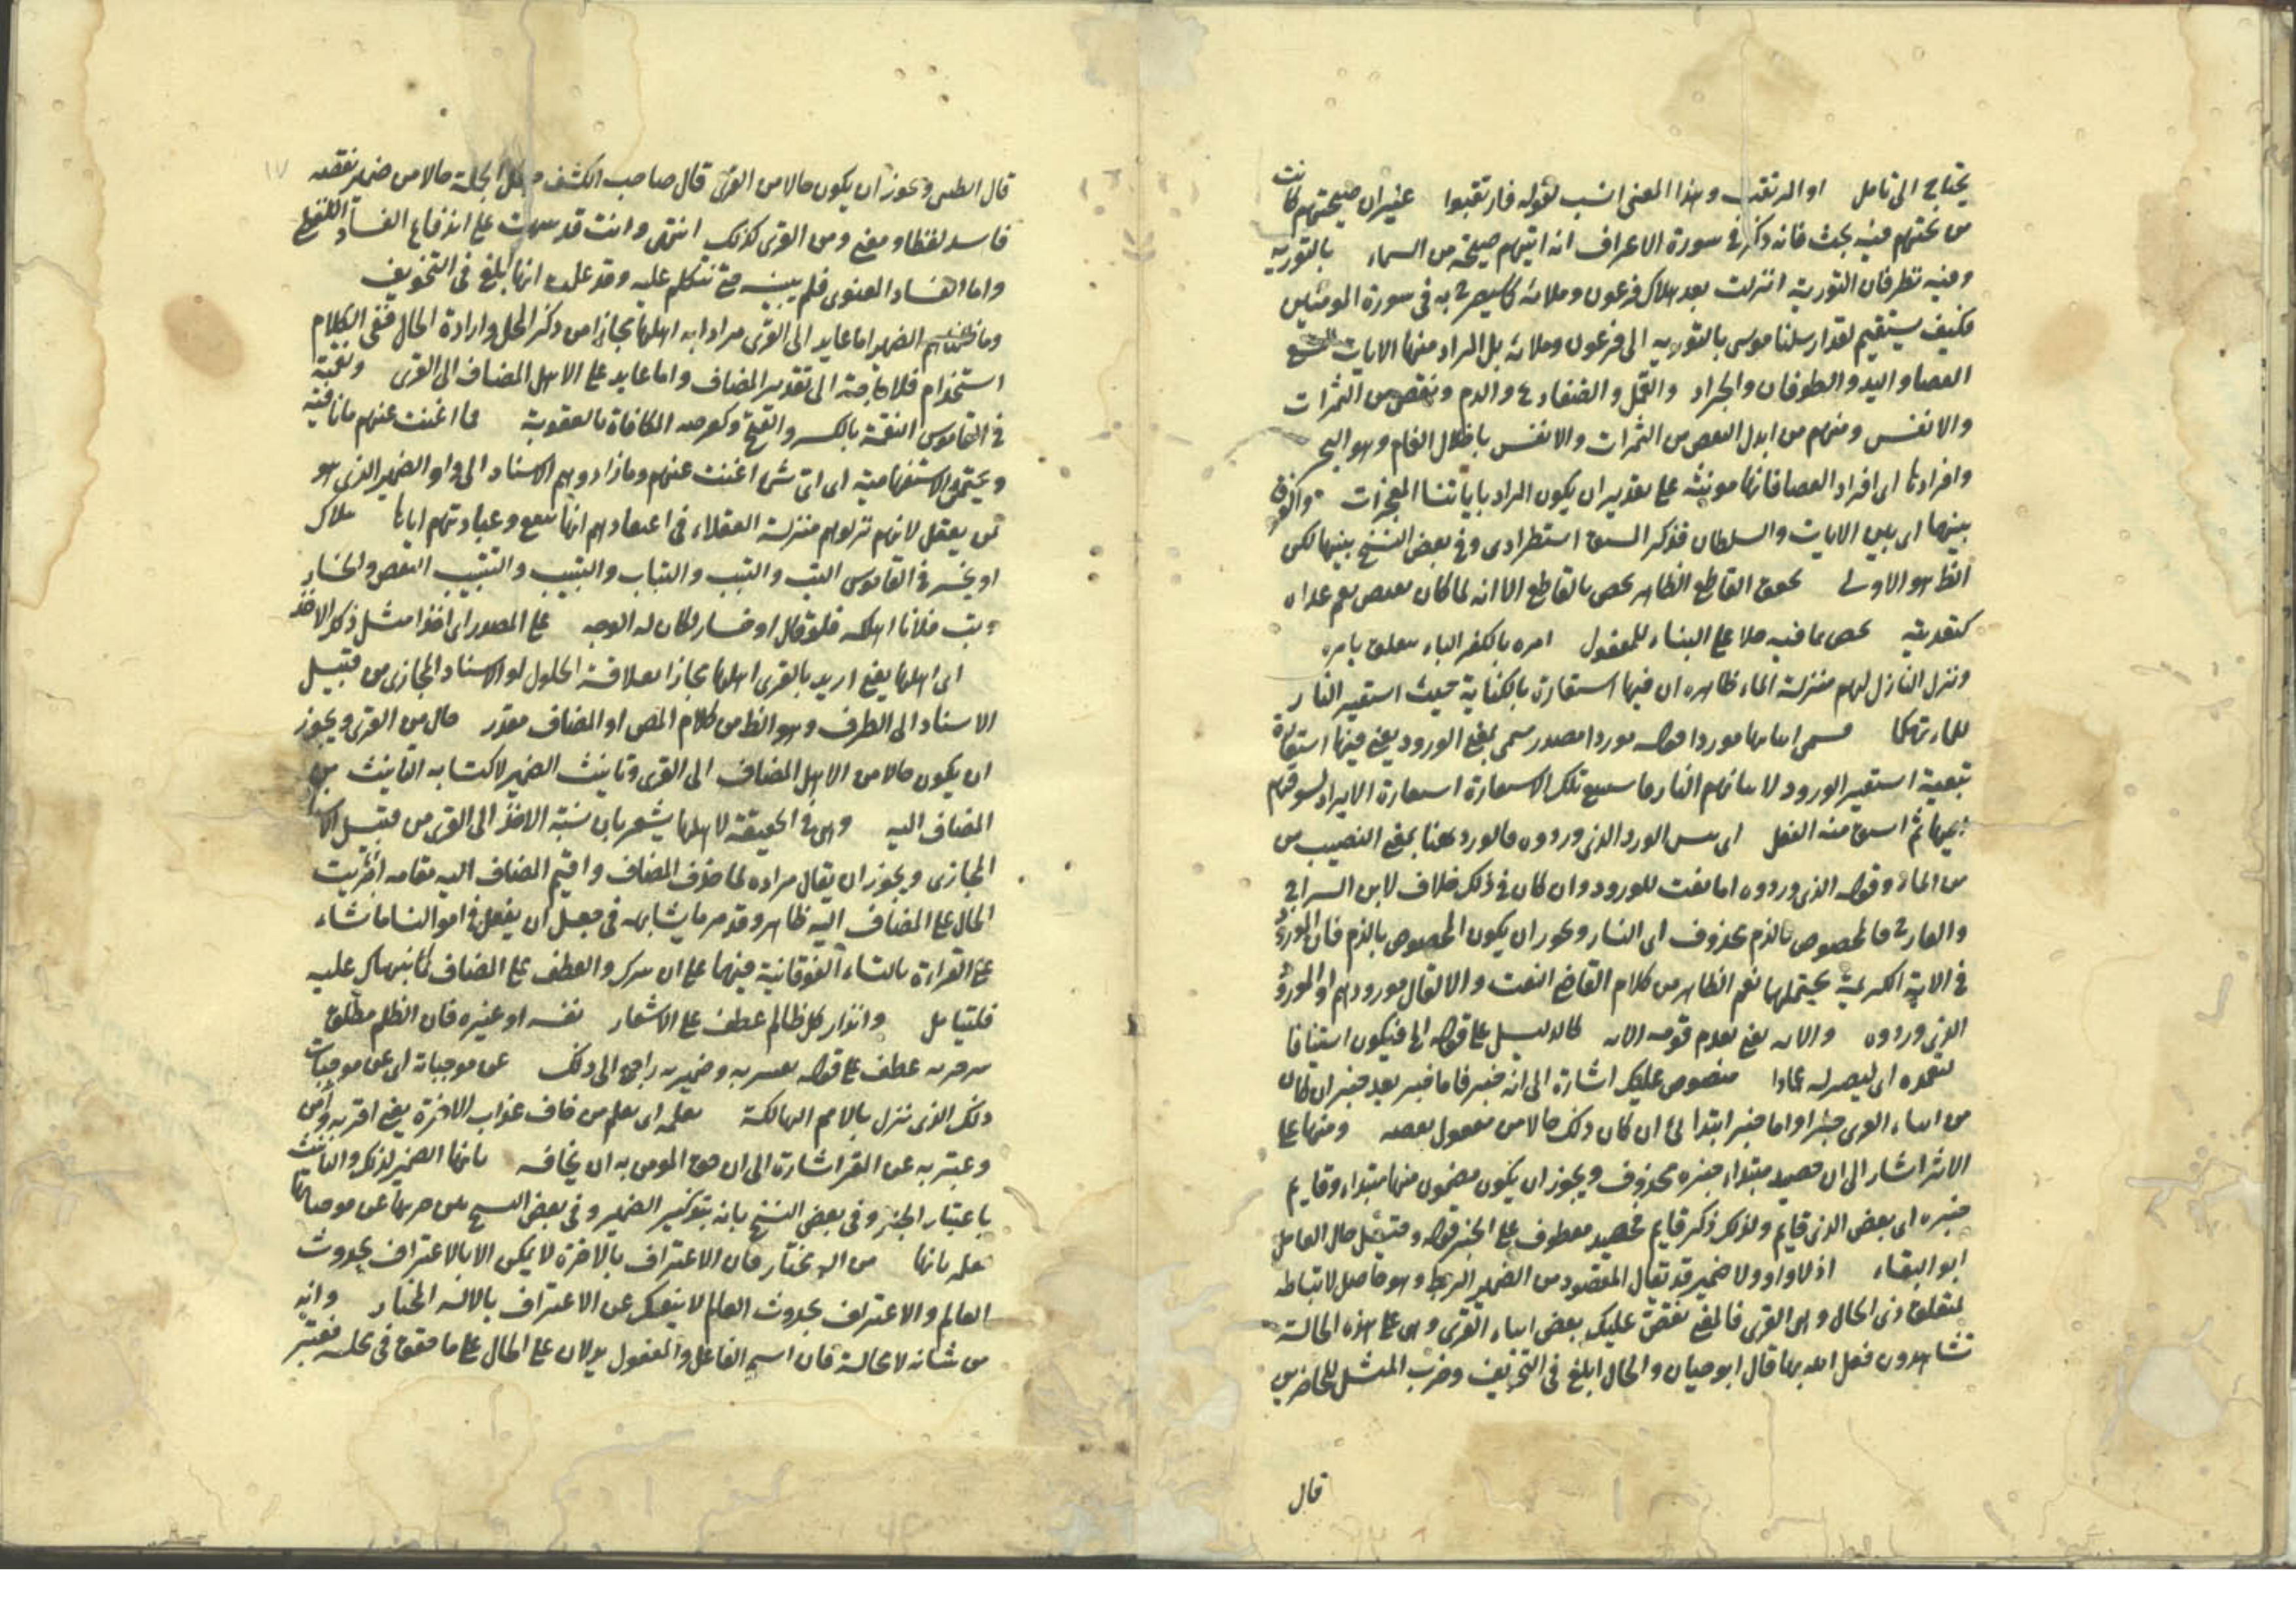 يحتاج الى تامل او المرتقب وهذا المعنى انسب لقوله فارتقبوا غير ان صيحتهم كانت
من تحتهم فيه بحث فانه ذكر في سورة الاعراف انه اتيهم صيحة من السماء بالتورية
وفيه نظر فان التورية انزلت بعد هلاك فرعون وملائه كما سيصرح به في سورة المومنين
فكيف يستقيم لقد ارسلنا موسى بالتورية الى فرعون وملائه بل المراد منها الايات التسع
العصا واليد والطوفان والجراد والقمل والضفادع والدم ونقص من الثمرات
والانفس ومنهم من ابدل النقص من الثمرات والانفس باظلال الغمام وهو البحر
وافرادها اى افراد العصا فانها مونثه على تقدير ان يكون المراد باياتنا المعجزات والفرق
بينهما اى بين الايات والسلطان فذكر استطرادى وفي بعض النسخ بينها لكن
الظ هو الاولى القاطع الظاهر يخص بالقاطع الا انه لما كان
كتعديته بما فيه صلا على البناء للمفعول امره بالكفر الباء متعلق بامره
ونزل النار لهم منزلة الماء ظاهره ان فيها استعارة بالكناية حيث استعير النار
للماء تهكما فسمى اتيانها موردا قوله موردا مصدر ميمى بمعنى الورود يعنى فيها استعارة
تبعية استعير الورود لاتيانهم النار وما تلك الاستعارة استعارة الايراد لسوقهم
اليها ثم اشتق منه الفعل اى بئس الورد الذى وردوه فالورد هنا بمعنى النصيب من
من الماء وقوله الذى وردوه اما نعت للورود وان كان في ذلك خلاف لابن السراج
والفارسى فالمخصوص بالذم محذوف اى النار ويجوز ان يكون المخصوص بالذم فان المورود
في الاية الكريمة يحتملها نعم الظاهر من كلام القاضى النعت والا لقال موردهم او المورود
الذى وردوه والايه يعنى يقدم قومه الايه كالدليل على قوله الخ فيكون استينافا
لتعمده اى ليصير له عمادا مقصوص عليك اشارة الى انه خبر فاما خبر بعد خبر ان كان
من انباء القرى خبرا واما خبر ابتدائى ان كان ذلك حالا من مفعول نقصه ومنها على
الاثر اشار الى ان حصيد مبتداء خبره محذوف ويجوز ان يكون مضمون منها مبتداء وقايم
خبره اى بعض الذى قايم ولذلك ذكر قايم حصيد معطوف على الخبر قوله وقيل حال العامل
ابو البقاء اذ لا واو ولا ضمير قد يقال المقصود من الضمير الربط وهو حاصل لارتباطه
بمتعلق ذى الحال وهى القرى فالمعنى نقص عليك بعض انباء القرى وهى على هذه الحالة
تشاهدون فعل الله بها قال ابو حيان والحال ابلغ في التخويف وضرب المثل للحاضرين
قال
قال الطيبى ويجوز ان يكون حالا من القرى قال صاحب الكشف جعل الجملة حالا من ضمير نقصه
فاسد لفظا ومعنى ومن القرى كذلك انتهى وانت قد على اندفاع الفساد اللفظى
واما الفساد المعنوى فلم يبينه حتى نتكلم عليه وقد علمت انها ابلغ في التخويف
وما ظلمناهم الضمير اما عايد الى القرى مرادا به اهلها مجازا من ذكر المحل وارادة الحال ففى الكلام
استخدام فلا حاجة الى تقدير المضاف واما عايد على الاهل المضاف الى القرى ونقمته
في القاموس النقمة بالكسر والفتح وكفرحة المكافاة بالعقوبة فما اغنت عنهم ما نافية
ويحتمل الاستفهامية اى اى شى اغنت عنهم وما زادوهم الاسناد الى واو الضمير الذى هو
لمن يعقل لانهم نزلوهم منزلة العقلاء في اعتقادهم انها تنفع وعبادتهم اياها هلاك
او تخسير في القاموس التب والتبب والتباب والتبيب والتتبيب النقص والخسار
وتب فلانا اهلكه فلو قال او خسار لكان له الوجه على المصدر اى اخذا مثل ذلك الاخذ
اى اهلها يعنى اريد بالقرى اهلها مجازا بعلاقة الحلول او الاسناد المجازى من قبيل
الاسناد الى الظرف وهو الظ من كلام المص او المضاف مقدر حال من القرى ويجوز
ان يكون حالا من الاهل المضاف الى القرى وتانيث الضمير لاكتسابه التانيث من
المضاف اليه وهى في الحقيقة لاهلها يشعر بان نسبة الاخذ الى القرى من قبيل الاسناد
المجازى ويجوز ان يقال مراده لما حذف المضاف واقيم المضاف اليه مقامه اجريت
الحال على المضاف اليه ظاهرا وقد مر ما يشابهه في جعل ان يفعل في اموالنا ما نشاء
على القراءة بالتاء الفوقانية فيهما على ان نترك والعطف على المضاف كما نبهناك عليه
فليتامل وانذار كل ظالم عطف على الاشعار نفسه او غيره فان الظلم مطلق
عطف على قوله وضمير به راجع الى ذلك عن موجباته اى عن موجبات
ذلك الذى نزل بالامم الهالكة يعلمه اى يعلم من خاف عذاب الاخرة يعنى اقر به وامن
وعبر به عن المقر اشارة الى ان حق المومن به ان يخافه بانها الضمير لذلك والتانيث
باعتبار الخبر وفي بعض النسخ بانه بتذكير الضمير وفي بعض
علمه بانها من اله مختار فان الاعتراف بالاخرة لا يمكن الا بالاعتراف بحدوث
العالم والاعتراف بحدوث العالم لا ينفك عن الاعتراف بالاله المختار وانه
من شانه لا محالة فان اسم الفاعل والمفعول يدلان على الحال على ما حقق في محله فيعتبر